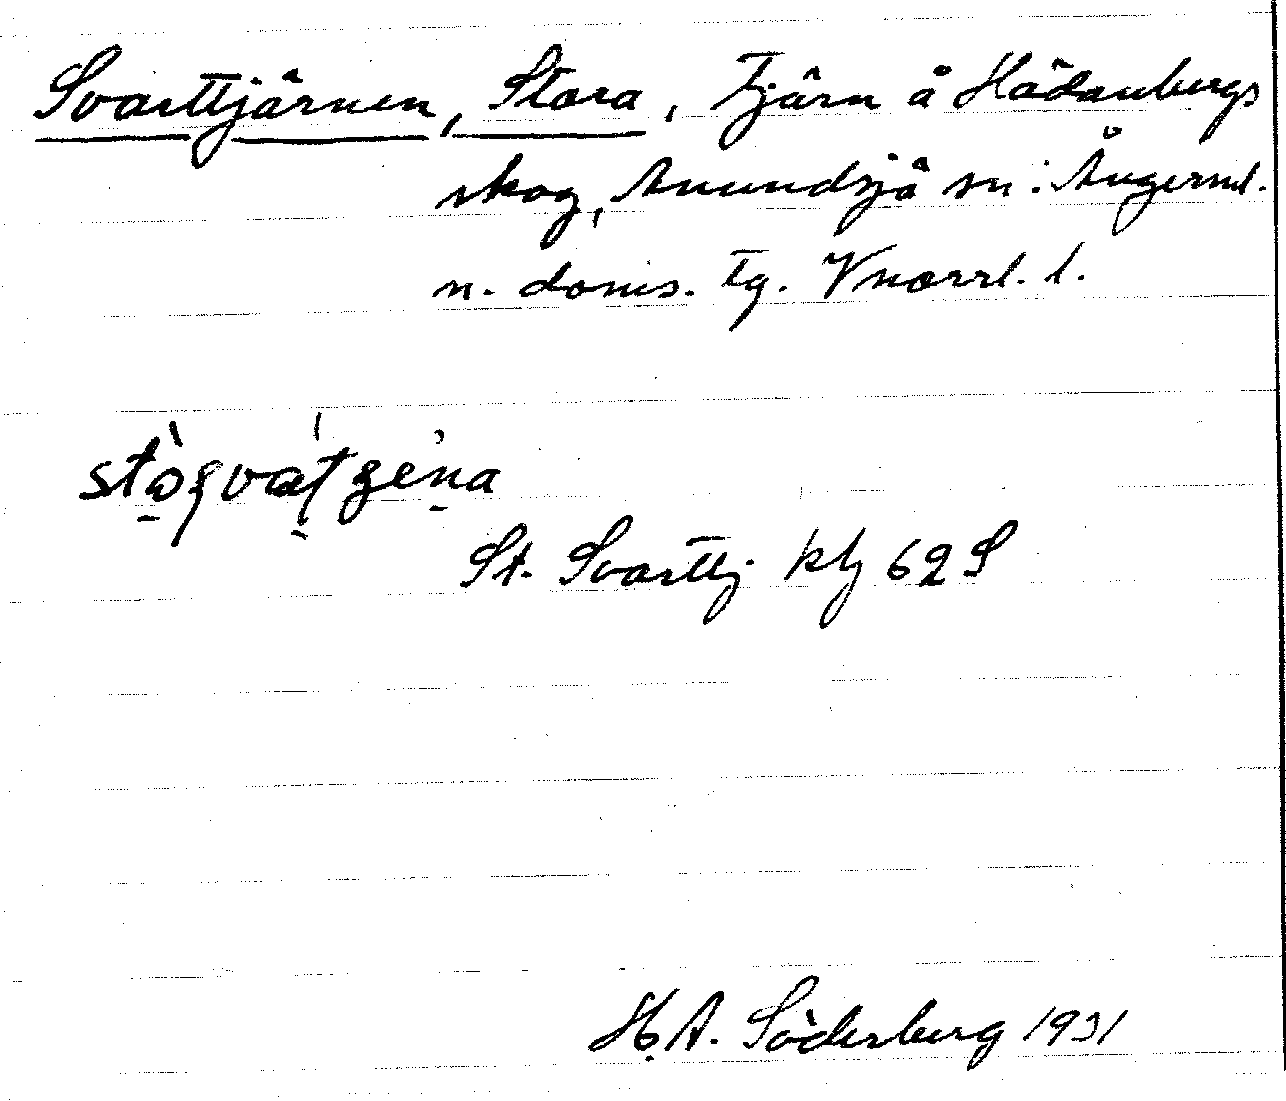 Svarttjärnen, Stora, Tjärn å Hädanbergs
skog, Anundsjö sn. Ångerml.
n. doms. tg. Vnorrl. l.
St. Svarttj. kbl 62 S
H.A. Söderberg 1931